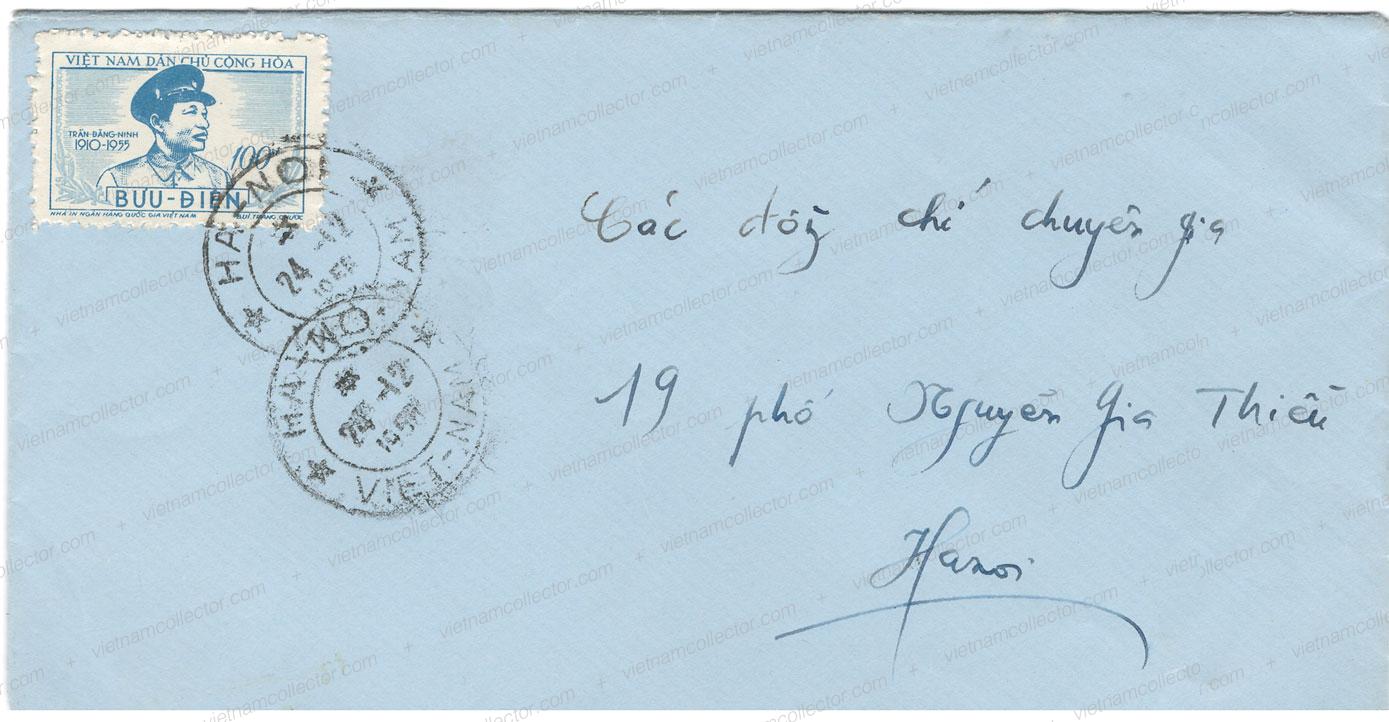 VIỆT NAM DÂN CHỦ CỘNG HÒA
TRẦN-ĐĂNG-NINH
1910-1955
100đ
BƯU-ĐIỆN
NHÀ IN NGÂN HÀNG QUỐC GIA VIỆT NAM BÙI TRANG CHƯỚC
HA-NOI
24 -12
1956
VIET-NAM
HA-NOI
24 -12
VIET-NAM
Các đồng chí chuyên gia
19 phố Nguyễn Gia Thiều
Hanoi
vietnamcollector.com